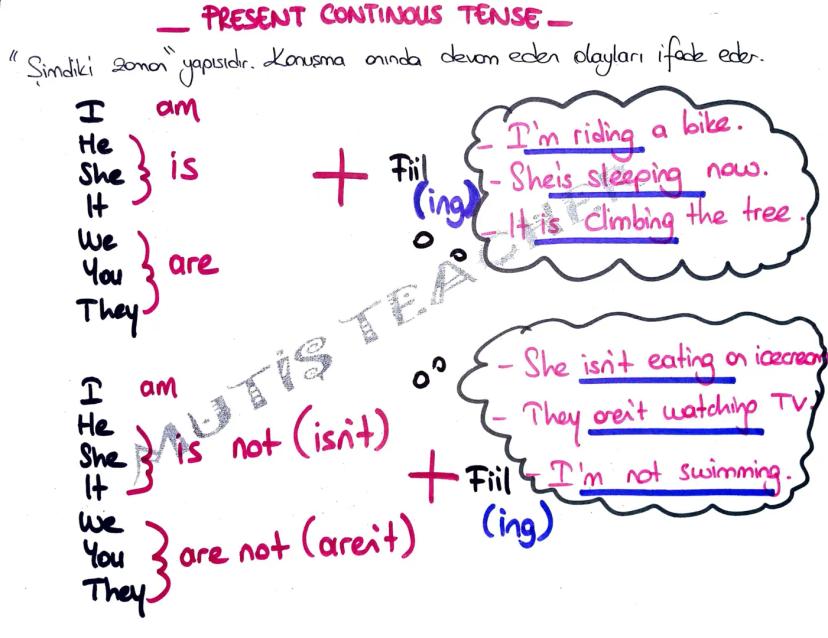 PRESENT CONTINOUS TENSE
"Şimdiki zaman" yapısıdır. Konuşma anında devam eden olayları ifade eder.
I am
He
She is
It
We
You are
They
+ Fiil
(ing)
- I'm riding a bike.
- She is sleeping now.
- It is climbing the tree.
MUTİŞ TEACHER
I am
He
She is not (isn't)
It
We
You are not (aren't)
They
+ Fiil
(ing)
- She isn't eating an icecream
- They aren't watching TV.
- I'm not swimming.